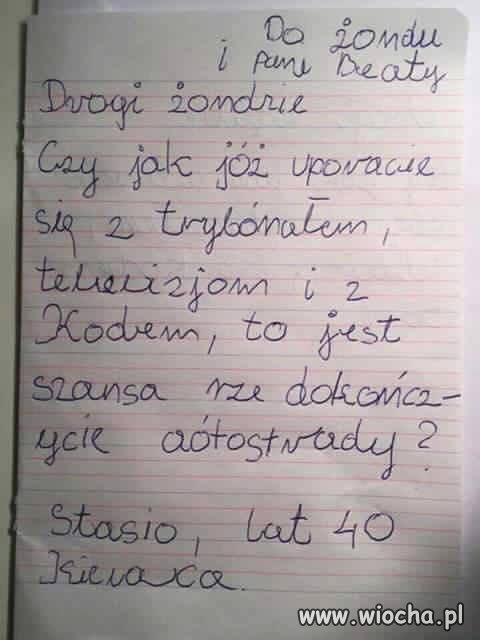 Do żondu
i pani Beaty
Drogi żondzie
Czy jak jóż uporacie
się z trybónałem,
telewizjom i z
Kodem, to jest
szansa rze dokończ-
ycie aótostrady?
Stasio, lat 40
Kierowca.
www.wiocha.pl